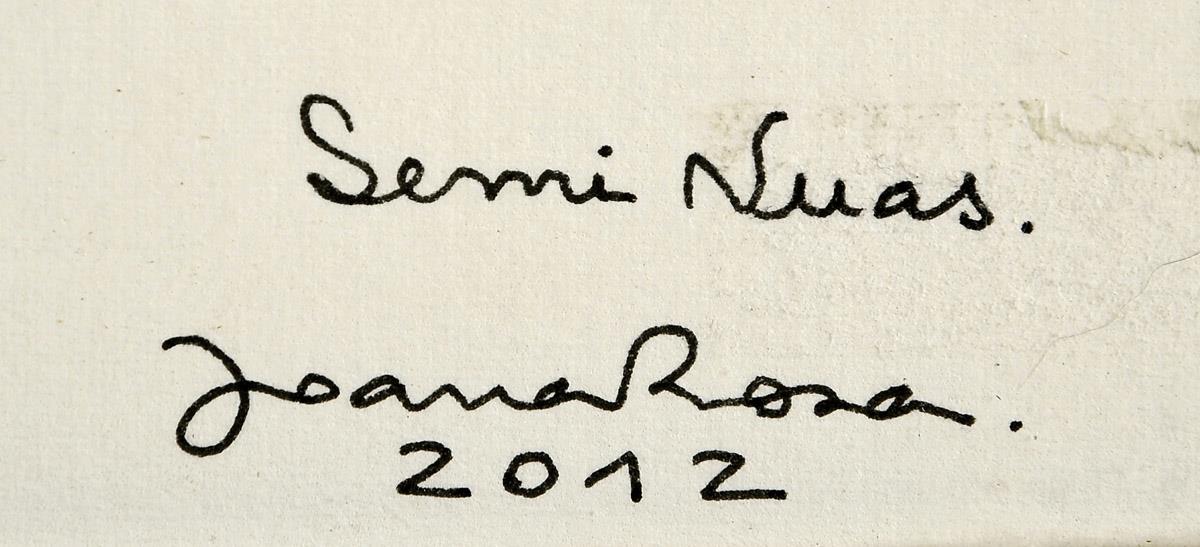 Semi Nuas.
Joana Rosa.
2012